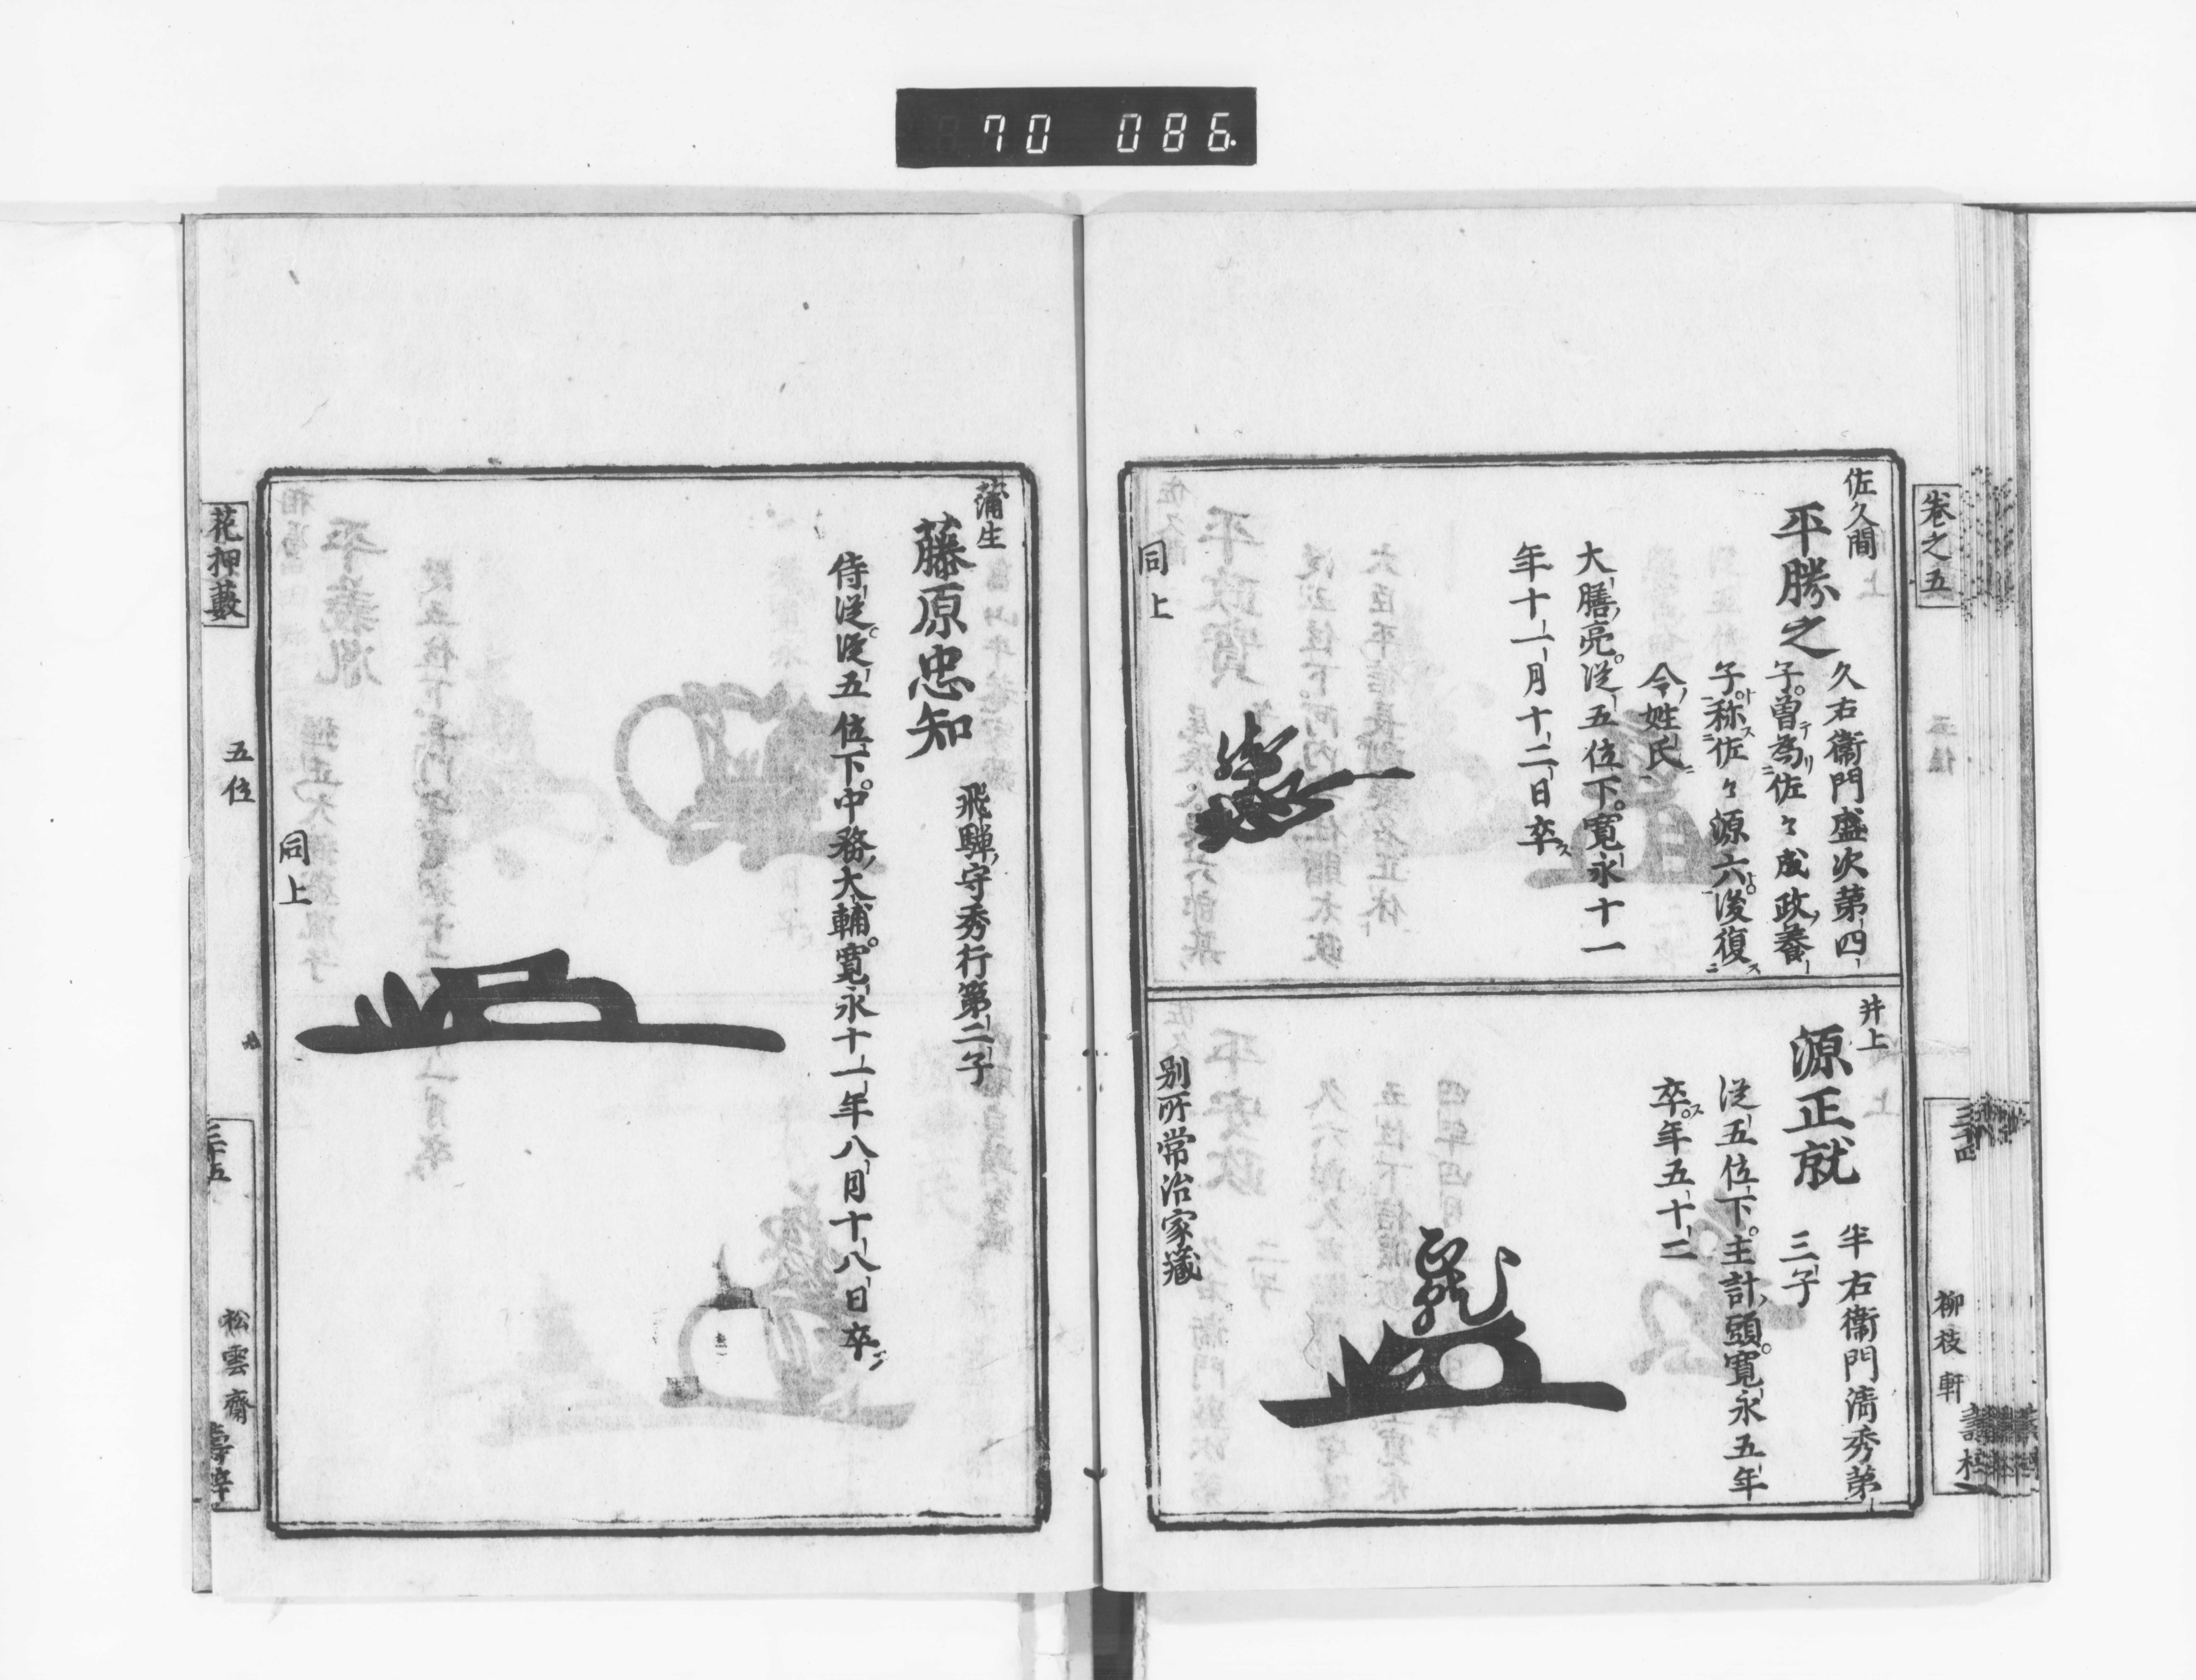 70 086
卷之五
三十四
柳枝軒
佐久間
平勝之
久右衞門盛次第四
子。曽為佐々成政養
子。称佐々源六。後復
今姓氏
大膳亮。従五位下。寛永十一
年十一月十二日卒
同上
井上
源正就
半右衞門清秀第
三子
従五位下。主計頭。寛永五年
卒。年五十二
別所常治家蔵
蒲生
藤原忠知
飛騨守秀行第二子
侍従。従五位下。中務大輔。寛永十一年八月十八日卒
同上
花押藪
五位
三十五
松雲齋